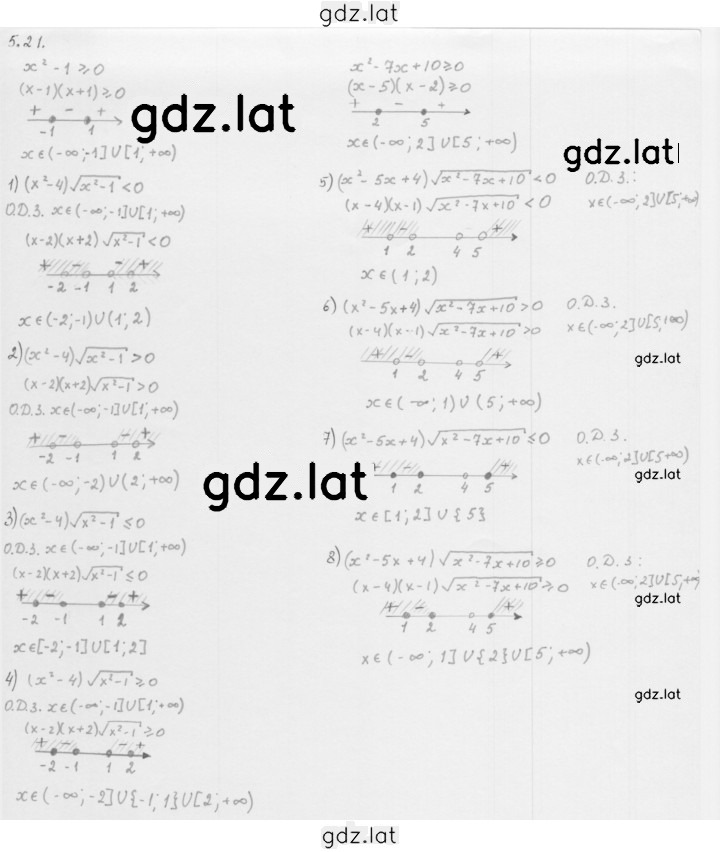 gdz.lat
5.21.
x² - 1 ≥ 0
(x-1)(x+1) ≥ 0
+ - +
-1 1
gdz.lat
x∈(-∞;-1]∪[1;+∞)
1) (x²-4)√(x²-1) < 0
О.Д.З. x∈(-∞;-1]∪[1;+∞)
(x-2)(x+2)√(x²-1) < 0
+ - - +
-2 -1 1 2
x∈(-2;-1)∪(1;2)
2) (x²-4)√(x²-1) > 0
(x-2)(x+2)√(x²-1) > 0
О.Д.З. x∈(-∞;-1]∪[1;+∞)
+ - - +
-2 -1 1 2
x∈(-∞;-2)∪(2;+∞)
gdz.lat
3) (x²-4)√(x²-1) ≤ 0
О.Д.З. x∈(-∞;-1]∪[1;+∞)
(x-2)(x+2)√(x²-1) ≤ 0
+ - - +
-2 -1 1 2
x∈[-2;-1]∪[1;2]
4) (x²-4)√(x²-1) ≥ 0
О.Д.З. x∈(-∞;-1]∪[1;+∞)
(x-2)(x+2)√(x²-1) ≥ 0
+ - - +
-2 -1 1 2
x∈(-∞;-2]∪{-1;1}∪[2;+∞)
x² - 7x + 10 ≥ 0
(x-5)(x-2) ≥ 0
+ - +
2 5
x∈(-∞;2]∪[5;+∞)
gdz.lat
5) (x²-5x+4)√(x²-7x+10) < 0 О.Д.З.:
(x-4)(x-1)√(x²-7x+10) < 0 x∈(-∞;2]∪[5;+∞)
+ - +
1 2 4 5
x∈(1;2)
6) (x²-5x+4)√(x²-7x+10) > 0 О.Д.З.
(x-4)(x-1)√(x²-7x+10) > 0 x∈(-∞;2]∪[5;+∞)
gdz.lat
+ - +
1 2 4 5
x∈(-∞;1)∪(5;+∞)
7) (x²-5x+4)√(x²-7x+10) ≤ 0 О.Д.З.
x∈(-∞;2]∪[5+∞)
gdz.lat
+ - +
1 2 4 5
x∈[1;2]∪{5}
8) (x²-5x+4)√(x²-7x+10) ≥ 0 О.Д.З:
(x-4)(x-1)√(x²-7x+10) ≥ 0 x∈(-∞;2]∪[5;+∞)
gdz.lat
+ - +
1 2 4 5
x∈(-∞;1]∪{2}∪[5;+∞)
gdz.lat
gdz.lat